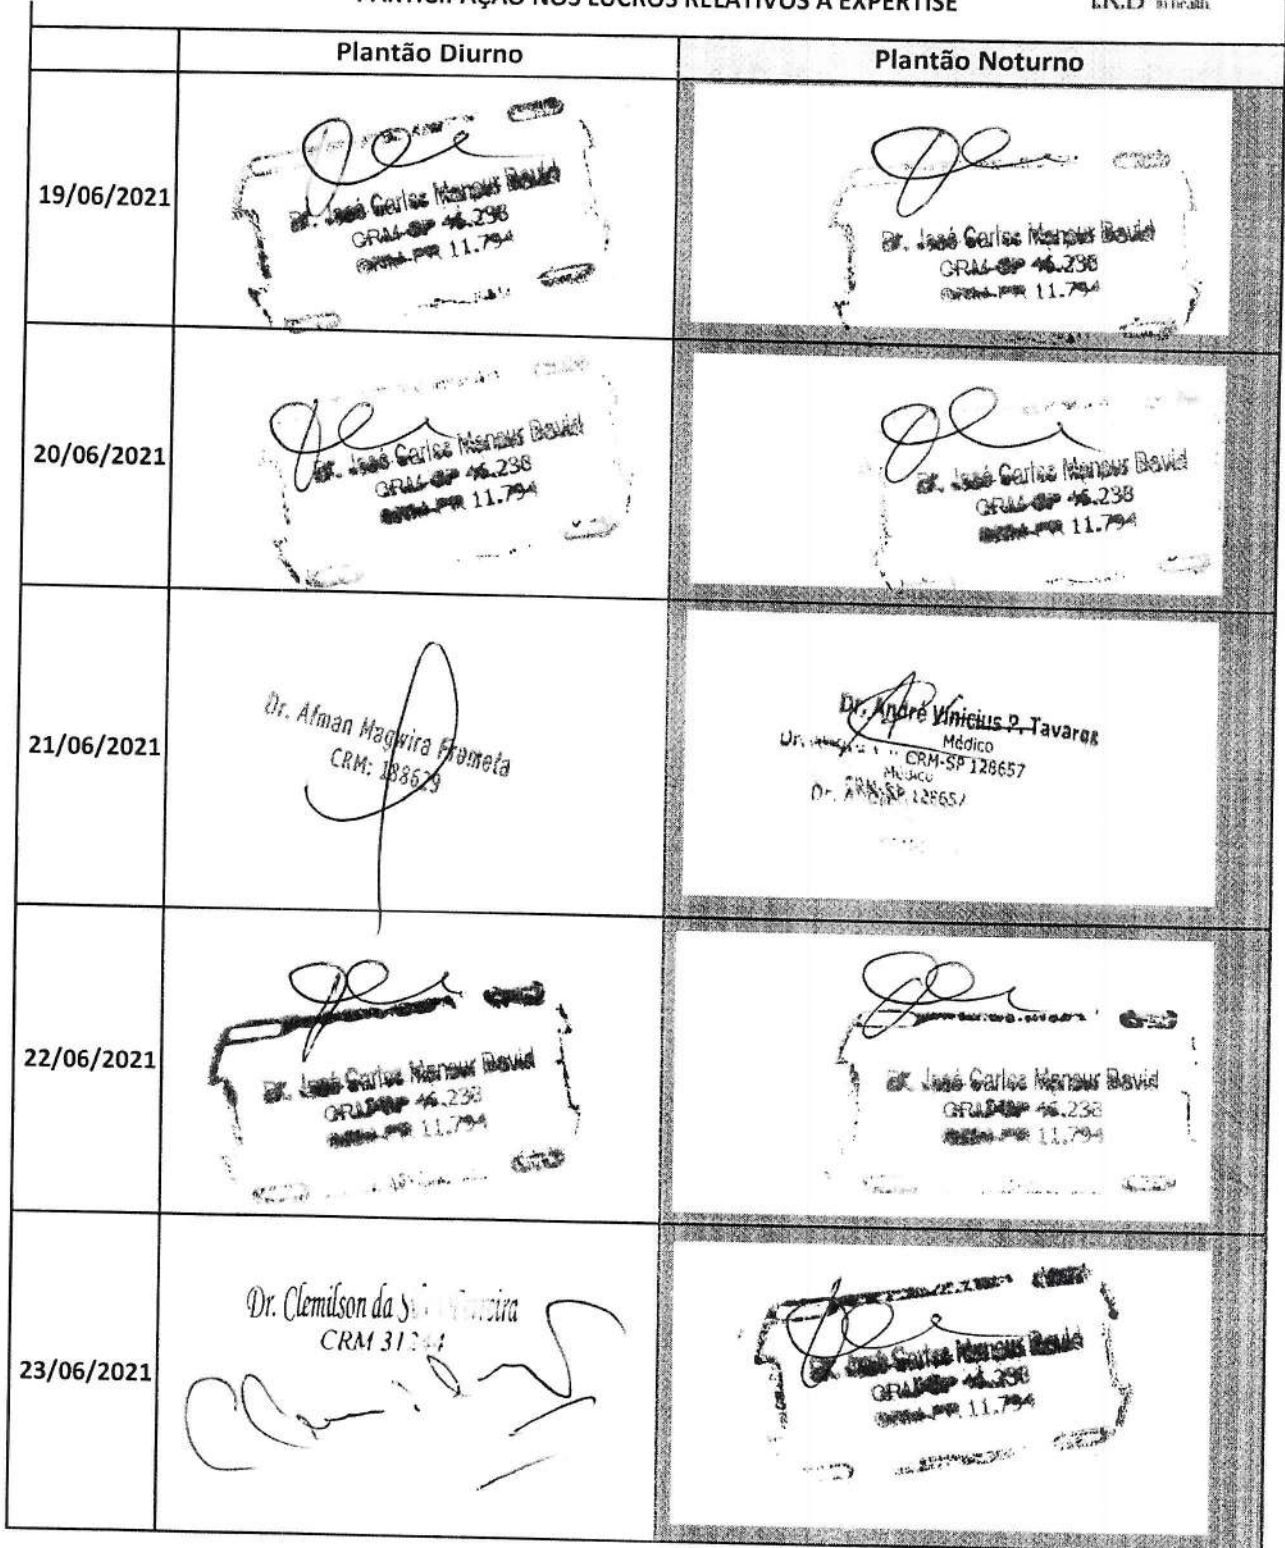 PARTICIPAÇÃO NOS LUCROS RELATIVOS A EXPERTISE
Plantão Diurno
Plantão Noturno
19/06/2021
Dr. José Carlos Mansur David
CRM-SP 46.238
CRM-PR 11.794
Dr. José Carlos Mansur David
CRM-SP 46.238
CRM-PR 11.794
20/06/2021
Dr. José Carlos Mansur David
CRM-SP 46.238
CRM-PR 11.794
Dr. José Carlos Mansur David
CRM-SP 46.238
CRM-PR 11.794
21/06/2021
Dr. Afman Magwira Frometa
CRM: 188629
Dr. André Vinicius P. Tavares
Médico
CRM-SP 128657
Médico
CRM-SP 128657
22/06/2021
Dr. José Carlos Mansur David
CRM-SP 46.238
CRM-PR 11.794
Dr. José Carlos Mansur David
CRM-SP 46.238
CRM-PR 11.794
23/06/2021
Dr. Clemilson da
CRM
Dr. José Carlos Mansur David
CRM-SP 46.238
CRM-PR 11.794